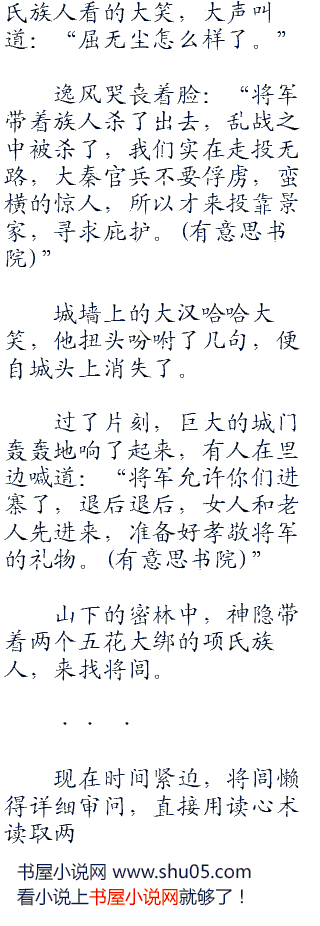 氏族人看的大笑，大声叫
道：“屈无尘怎么样了。”
逸风哭丧着脸：“将军
带着族人杀了出去，乱战之
中被杀了，我们实在走投无
路，大秦官兵不要俘虏，蛮
横的惊人，所以才来投靠景
家，寻求庇护。(有意思书
院)”
城墙上的大汉哈哈大
笑，他扭头吩咐了几句，便
自城头上消失了。
过了片刻，巨大的城门
轰轰地响了起来，有人在里
边喊道：“将军允许你们进
寨了，退后退后，女人和老
人先进来，准备好孝敬将军
的礼物。(有意思书院)”
山下的密林中，神隐带
着两个五花大绑的项氏族
人，来找将闾。
．．．
现在时间紧迫，将闾懒
得详细审问，直接用读心术
读取两
书屋小说网 www.shu05.com
看小说上书屋小说网就够了！